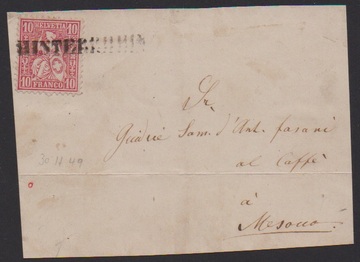 10 HELVETIA 10
10 FRANCO 10
HINTERRHEIN
Sr.
Giudice Sam. d'Ant. fasani
al Caffè
à
Mesocco
30 11 49